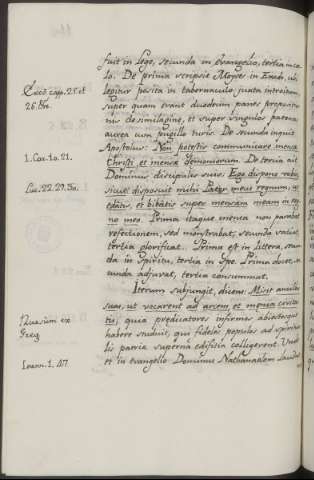 fuit in Lege, secunda in Evangelio, tertia in cœ-
lo. De prima scripsit Moyses in Exodo, ubi
Exod. capp. 25. et
legitur posita in tabernaculo juxta introitum,
26. Bre.
super quam erant duodecim panes propositio-
nis de similagine, et super singulos patena
aurea cum pugillo turis. De secunda inquit
Apostolus: Non potestis communicare mensæ
1. Cor. 10. 21.
Christi et mensæ dæmoniorum. De tertia ait
Dominus discipulis suis: Ego dispono vobis,
Luc. 22. 29. 30.
sicut disposuit mihi Pater meus regnum, ut
edatis, et bibatis super mensam meam in reg-
no meo. Prima itaque mensa non parabat
refectionem, sed monstrabat, secunda satiat,
tertia glorificat. Prima est in littera, secun-
da in Spiritu, tertia in Spe. Prima docet, se-
cunda adjuvat, tertia consummat.
Iterum subjungit, dicens: Misit ancillas
suas, ut vocarent ad arcem, et mœnia civita-
tis, quia prædicatores infirmos abjectosque
habere studuit, qui fideles populos ad spiritua-
ex
lis patriæ superna ædificia colligerent. Unde
Greg.
et in evangelio Dominus Nathanaelem laudat
Joann. 1. 47.